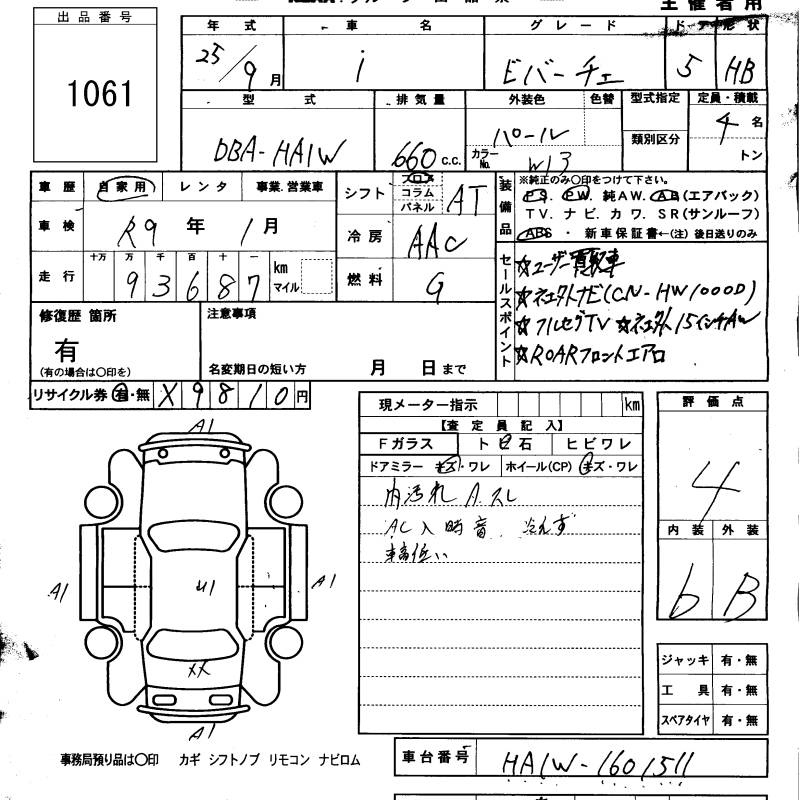 主催者用
出品番号
1061
年式 車名 グレード ドア 形状
25/9月 i ビバーチェ 5 HB
型式 排気量 外装色 色替 型式指定 定員・積載
DBA-HA1W 660 c.c. パール 類別区分 4名
カラーNo. W13 トン
車歴 自家用 レンタ 事業.営業車
シフト フロア コラム パネル AT
車検 R9年 1月
冷房 AAC
走行 十万 万 千 百 十 一
93687 km マイル
燃料 G
装備品
※純正のみ〇印をつけて下さい。
PS. PW. 純AW. AB(エアバック)
TV. ナビ. カワ. SR(サンルーフ)
ABS ・ 新車保証書←(注) 後日送りのみ
セールスポイント
☆ユーザー買取車
☆ネエクトナビ(CN-HW1000D)
☆フルセグTV ☆ネエクト15インチAW
☆ROARフロントエアロ
修復歴 箇所
有
(有の場合は〇印を)
注意事項
名変期日の短い方 月 日まで
リサイクル券 有・無 X9810円
現メーター指示 km
【査定員記入】
Fガラス トビ石 ヒビワレ
ドアミラー キズ・ワレ ホイール(CP) キズ・ワレ
内汚れ A.スレ
AC入時音 冷えず
車高低い
評価点
4
内装 外装
b B
A1
A1 U1 A1
XX
A1
ジャッキ 有・無
工具 有・無
スペアタイヤ 有・無
事務局預り品は〇印 カギ シフトノブ リモコン ナビロム
車台番号 HA1W-1601511